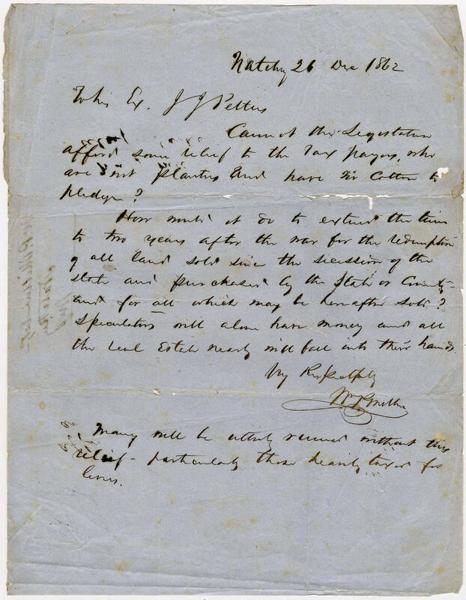 Natchez 26 Dec 1862
To his Ex. J J Pettus
Cannot the Legislature
afford some relief to the tax payers, who
are not planters and have no Cotton to
pledge?
How would it do to extend the time
to two years after the war for the redemption
of all land sold since the secession of the
State and purchased by the State or County
and for all which may be hereafter sold?
Speculators will alone have money and all
the real estate nearly will fall into their hands
Very Respectfully
Many will be utterly ruined without this
relief - particularly those heavily taxed for